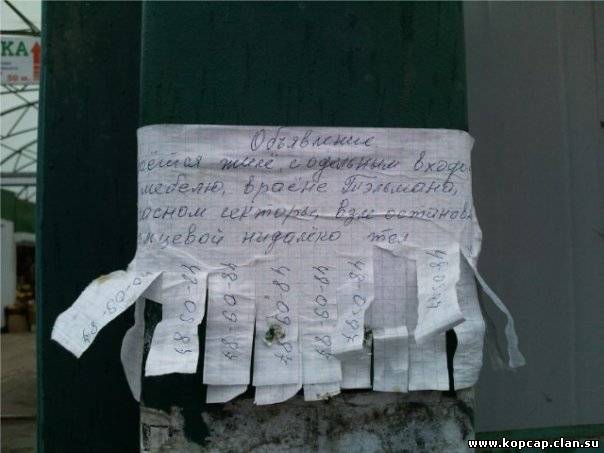 КА
50 м.
Объявление
аётся жилё, с одельным входо
мебелю, враёне Тэльмана,
асном секторы, взле останов
нцевой нидалёко тся
48-09-87
48-09-87
48-09-87
48-09-87
48-09-87
48-09-87
48-09-87
www.kopcap.clan.su